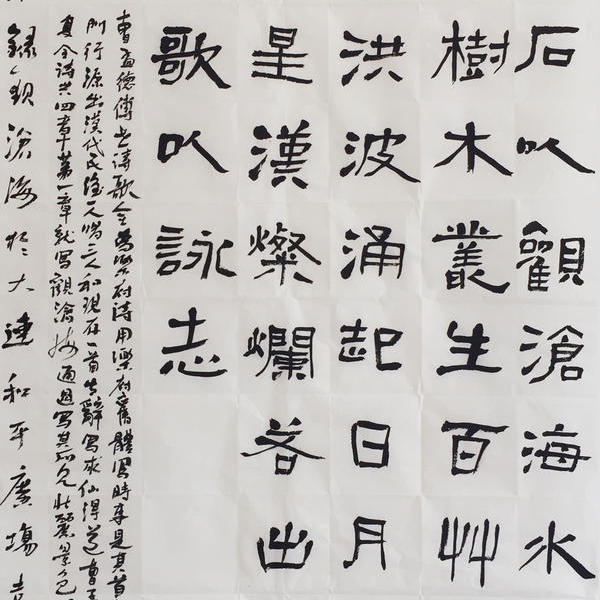 石以觀滄海水
樹木叢生百艸
洪波涌起日月
星漢燦爛若出
歌以詠志
曹孟德傳世詩歌全為樂府詩用樂府舊體寫時事是其首
門行源出漢代民謠人唱三人和現存一首古辭寫求仙得道曹
全詩共四章第一章就寫觀滄海通過寫其所見壯麗景色
錄觀滄海於大連和平廣場